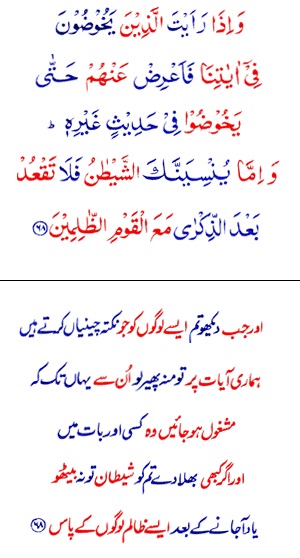 وَ اِذَا رَاَيْتَ الَّذِيْنَ يَخُوْضُوْنَ
فِيْۤ اٰيٰتِنَا فَاَعْرِضْ عَنْهُمْ حَتّٰى
يَخُوْضُوْا فِيْ حَدِيْثٍ غَيْرِهٖ ؕ
وَ اِمَّا يُنْسِيَنَّكَ الشَّيْطٰنُ فَلَا تَقْعُدْ
بَعْدَ الذِّكْرٰى مَعَ الْقَوْمِ الظّٰلِمِيْنَ ۶۸
اور جب دیکھو تم ایسے لوگوں کو جو نکتہ چینیاں کرتے ہیں
ہماری آیات پر تو منہ پھیر لو اُن سے یہاں تک کہ
مشغول ہو جائیں وہ کسی اور بات میں
اور اگر کبھی بھلا دے تم کو شیطان تو نہ بیٹھو
یاد آجانے کے بعد ایسے ظالم لوگوں کے پاس ۶۸